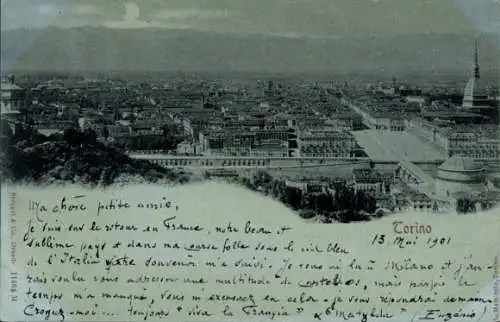 Torino
13 Mai 1901
Ma chère petite amie,
Je suis sur le retour en France, notre beau et
sublime pays et dans ma course folle sous le ciel bleu
de l'Italie votre souvenir m'a suivi. Je vous ai lu à Milano et j'au-
rais voulu vous adresser une multitude de mais parfois le
temps m'a manqué, vous m'excuserez en cela je vous répondrai demain
Croyez-moi ... toujours "viva la Francia" (Eugénio)